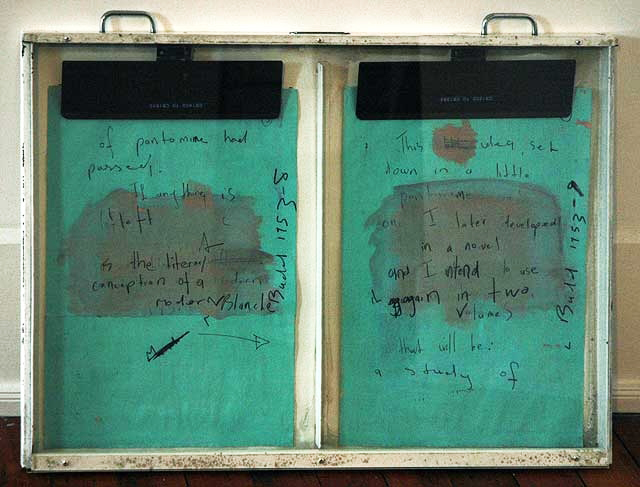 of pantomime had
passed.
If anything is
left
is the literary
conception of a modern
modern Blanche
Budd 1953-8
This idea, set
down in a little
pantomime
one I later developed
in a novel
and I intend to use
again in two
volumes
that will be:
a study of
Budd 1953-9